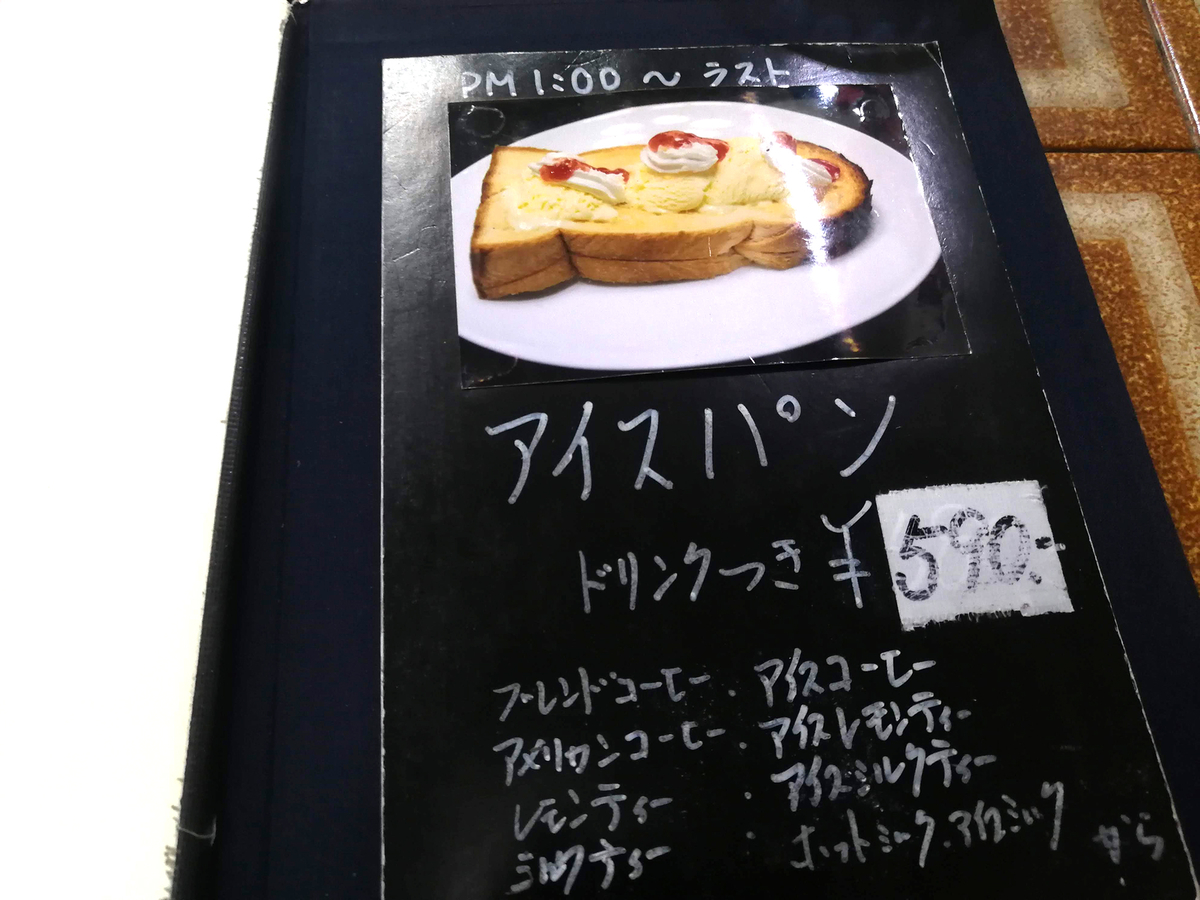 PM 1:00 〜 ラスト
アイスパン
ドリンクつき ¥590.-
ブレンドコーヒー . アイスコーヒー
アメリカンコーヒー . アイスレモンティー
レモンティー . アイスミルクティー
ミルクティー . ホットミルク.アイスミルク から